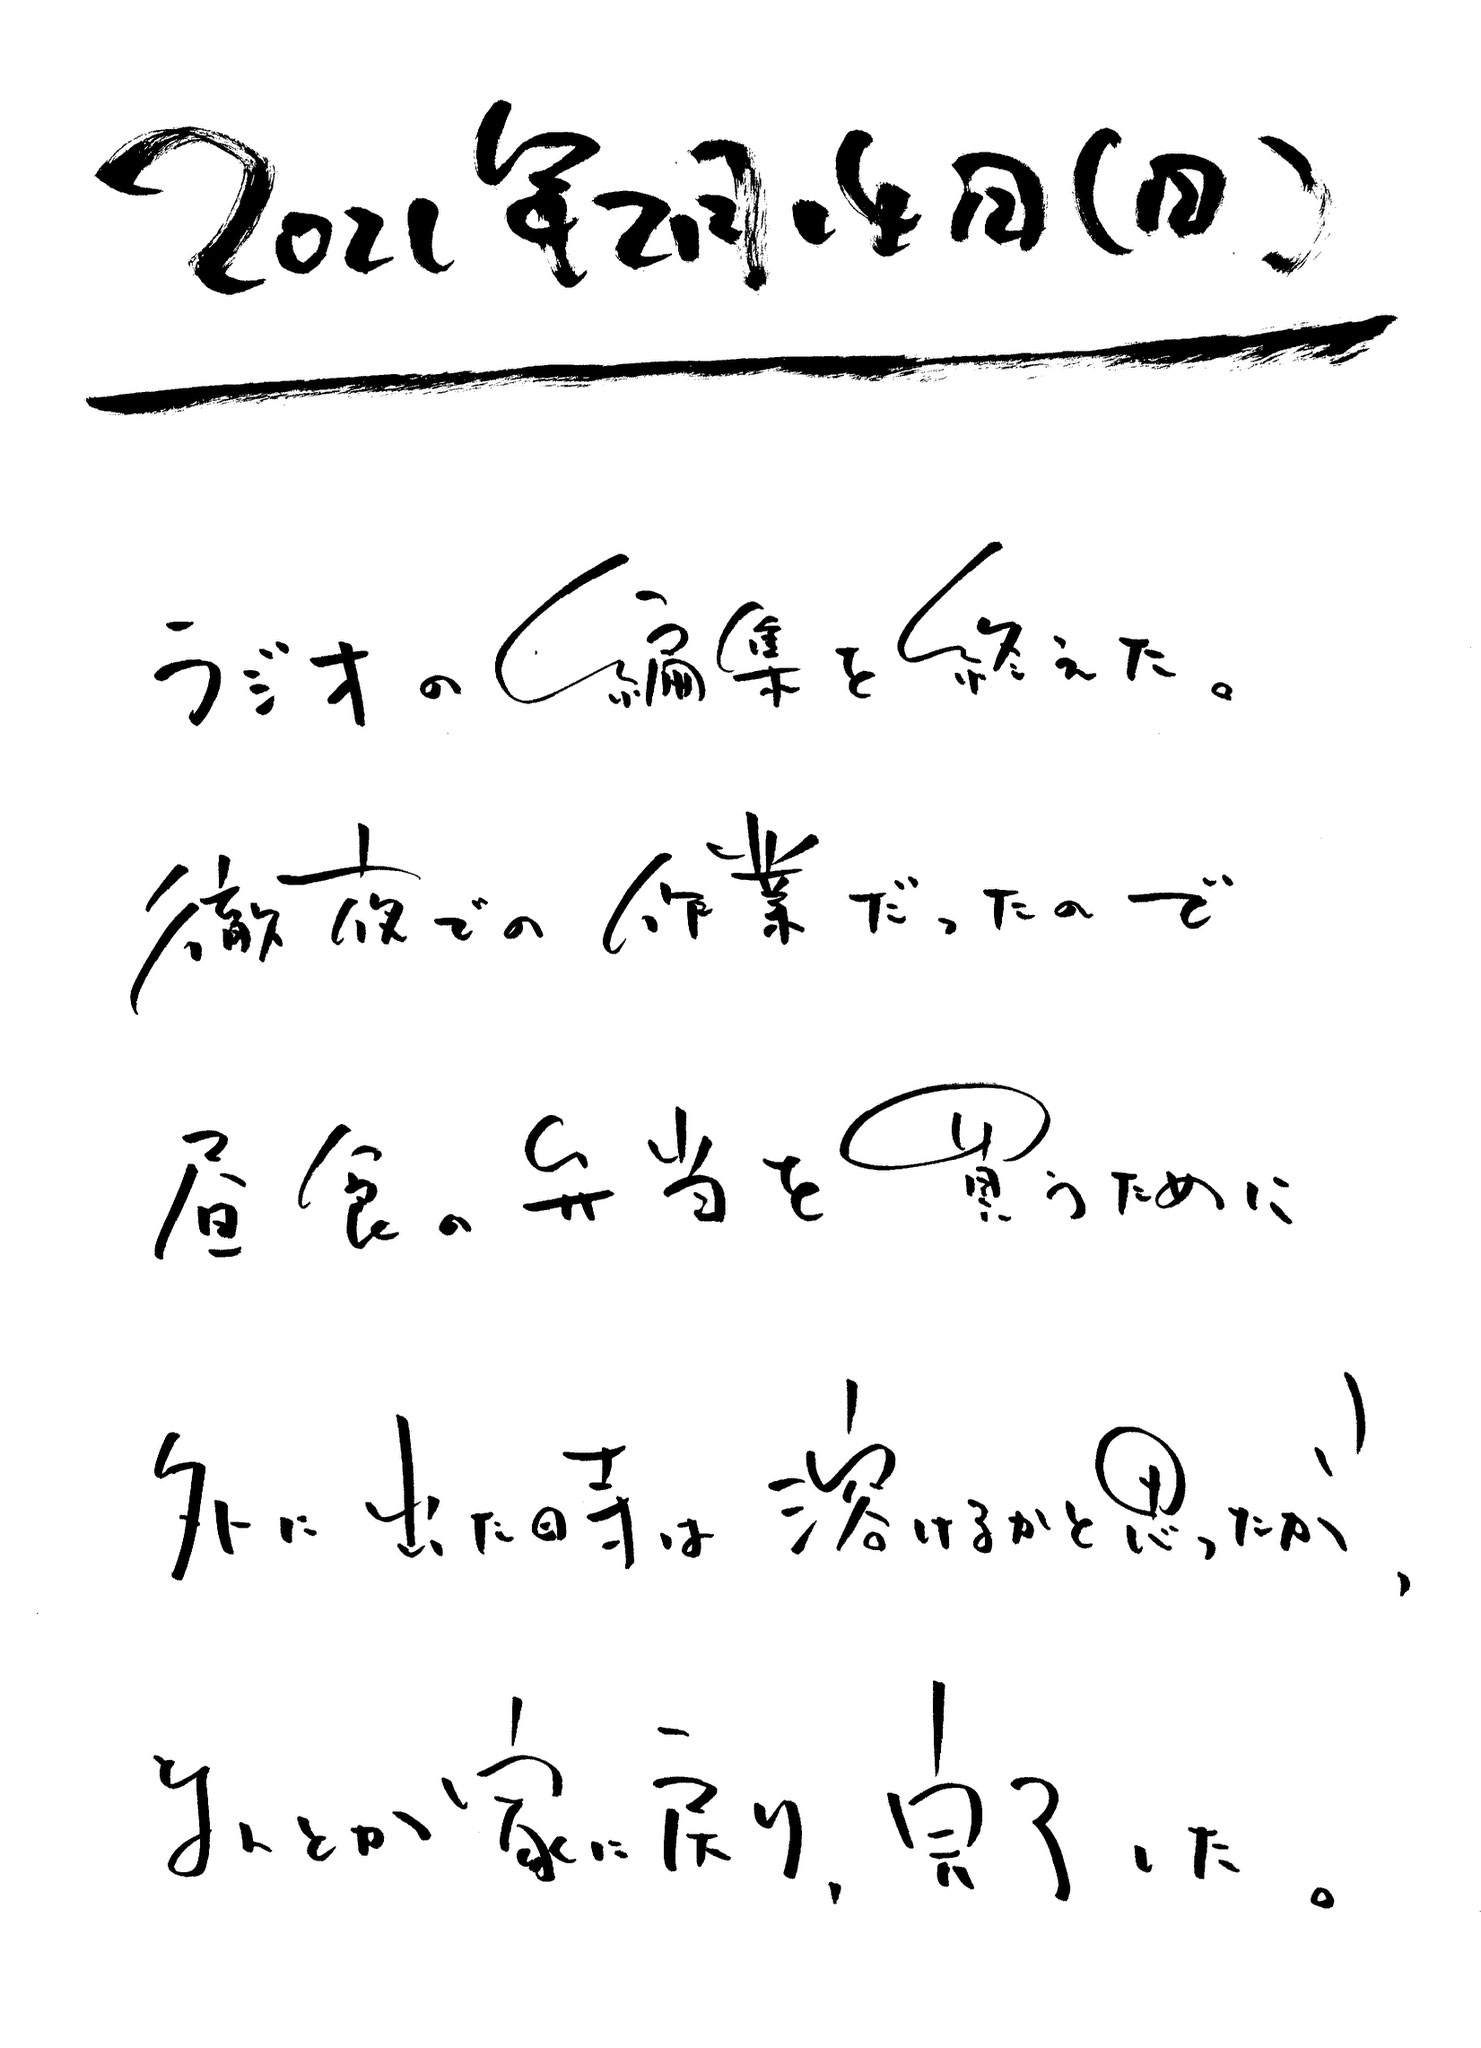 2021年2月14日(日)
ラジオの編集を終えた。
徹夜での作業だったので
昼食の弁当を買うために
外に出た時は溶けるかと思ったが、
なんとか家に戻り、完了した。